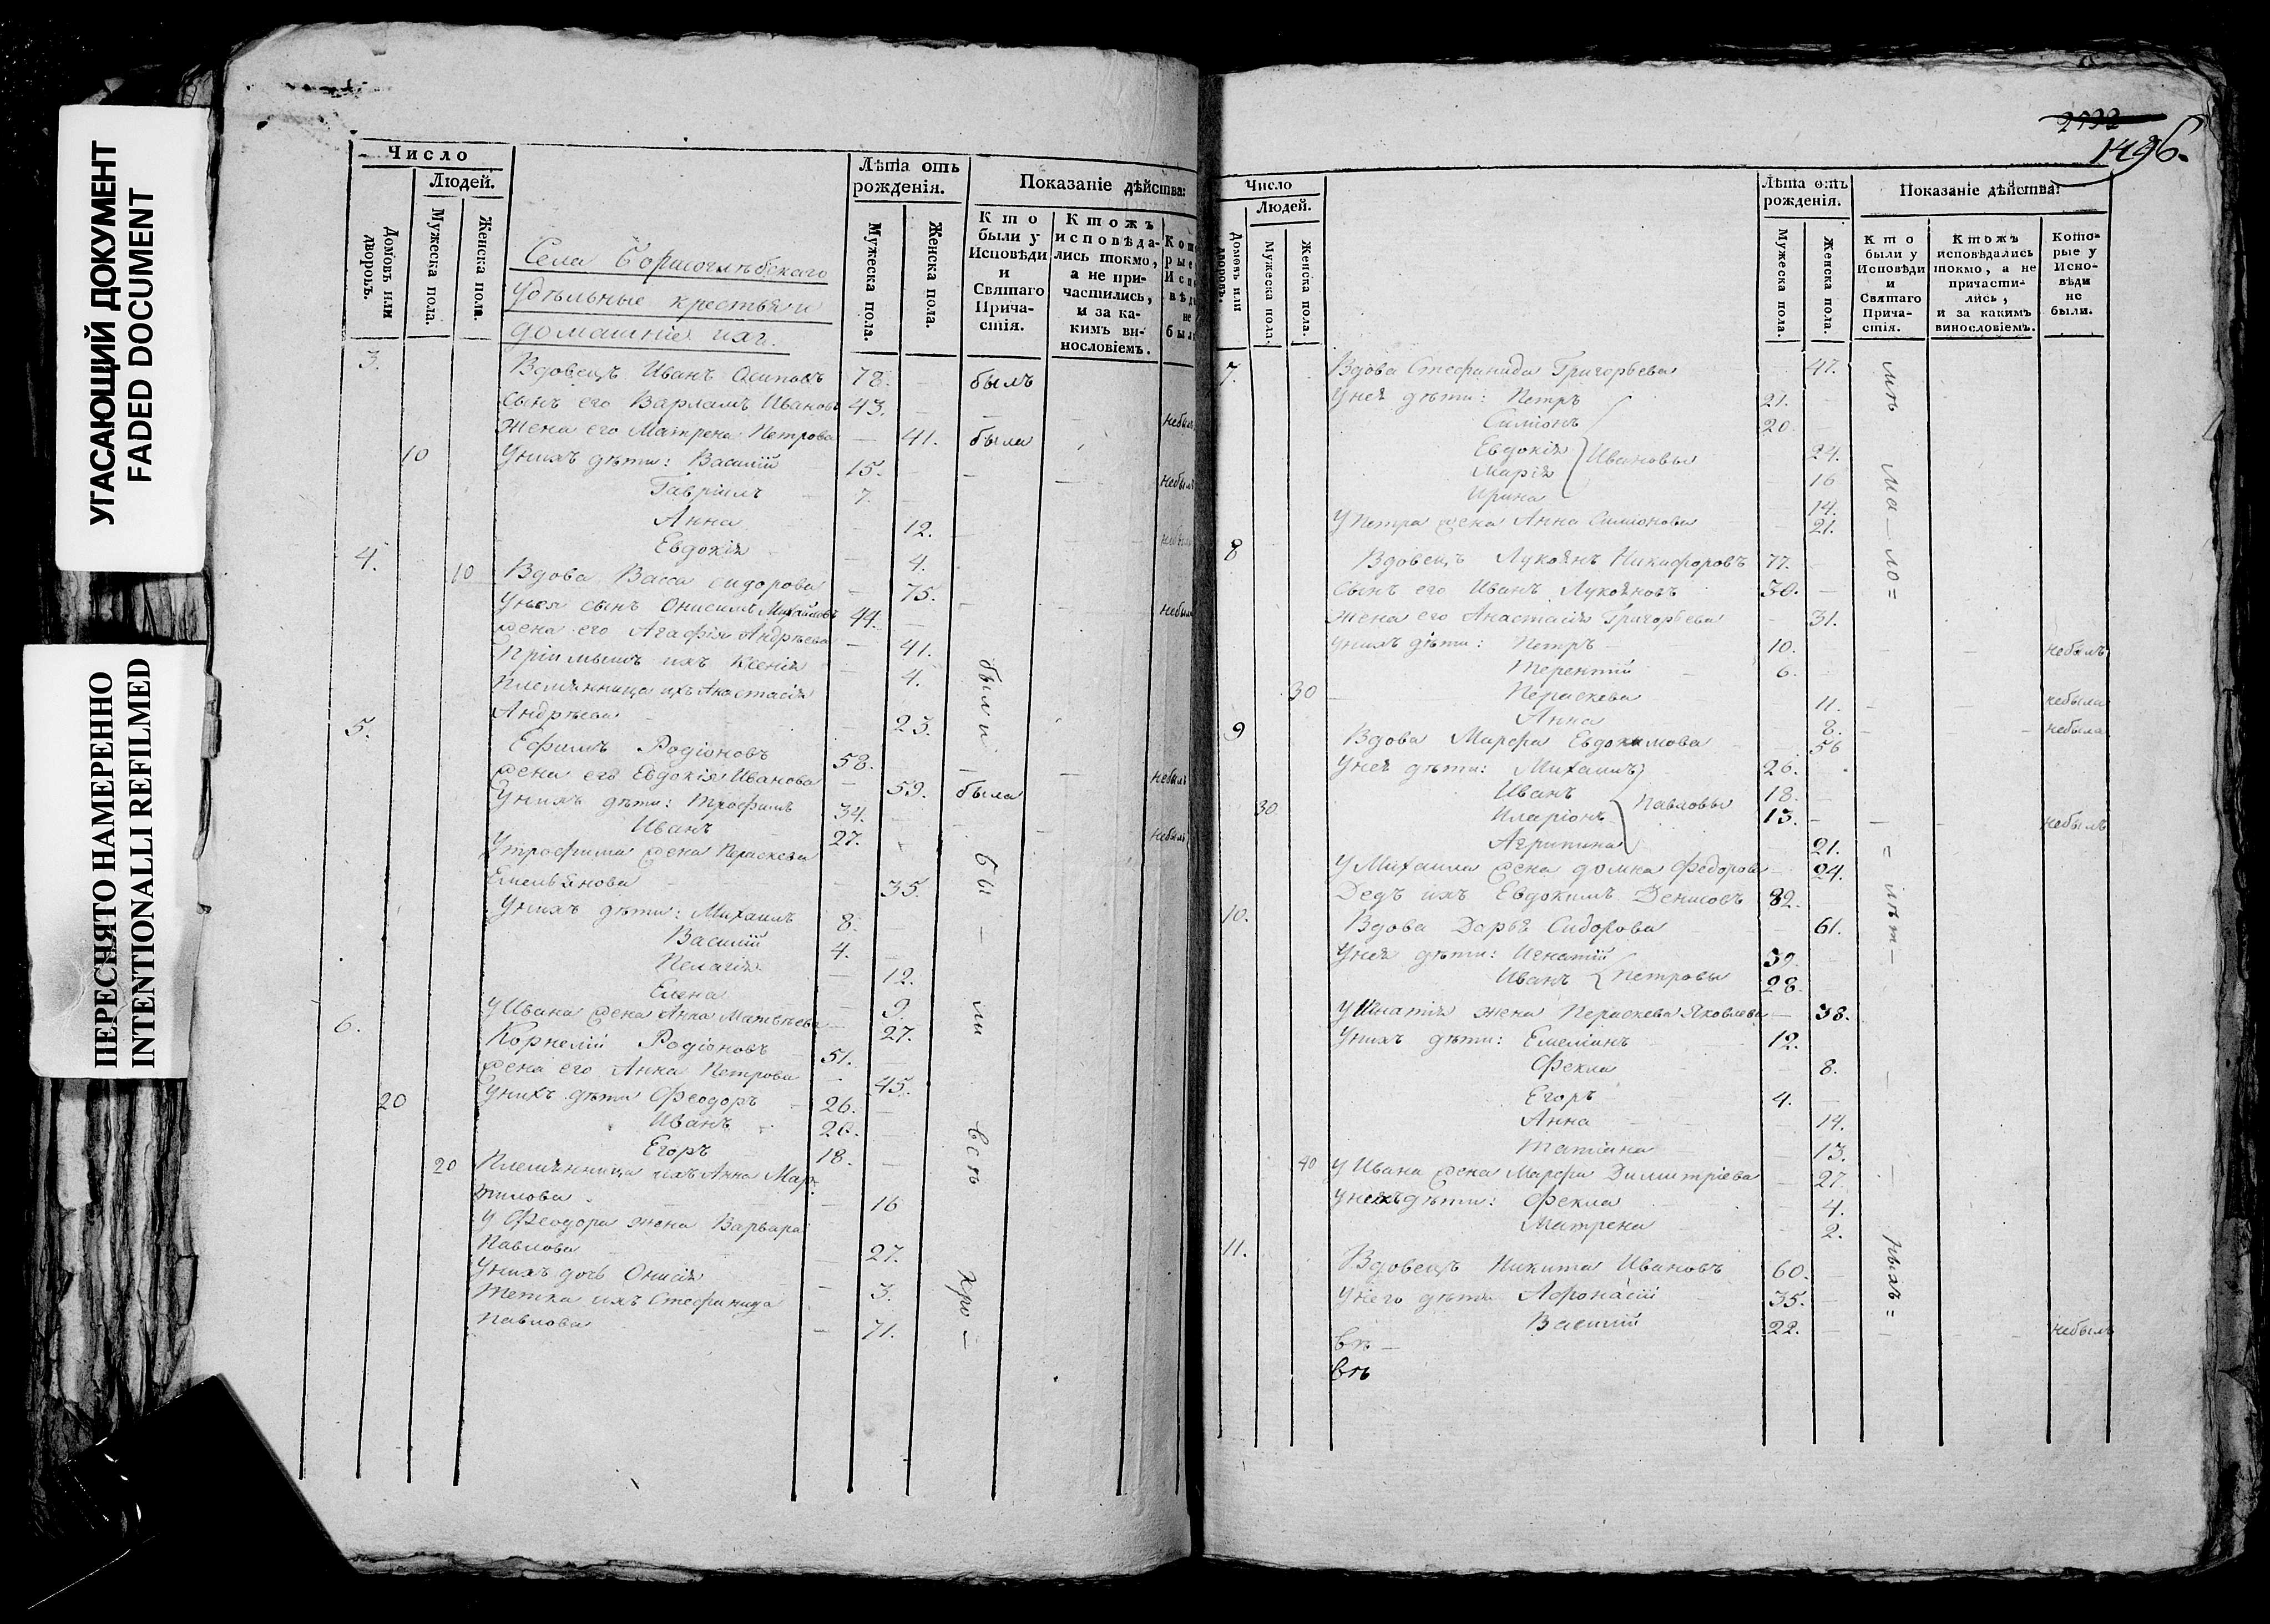 УГАСАЮЩИЙ ДОКУМЕНТ
FADED DOCUMENT
ПЕРЕСНЯТО НАМЕРЕННО
INTENTIONALLI REFILMED
Число
Людей.
Домовъ или дворовъ.
Мужеска пола.
Женска пола.
Лѣта отъ рожденія.
Мужеска пола.
Женска пола.
Показаніе дѣйства:
Кто были у Исповѣди и Святаго Причастія.
Ктожъ исповѣдались токмо, а не причастились, и за какимъ винословіемъ.
Села Борисоглѣбскаго
Удѣльные крестьяне и
домашніе ихъ.
3. Вдовецъ Иванъ Осиповъ 78. былъ
Сынъ его Варламъ Ивановъ 43. небылъ
Жена его Матрена Петрова 41. была
10 У нихъ дѣти: Василій 15. небылъ
Гавріилъ 7.
Анна 12.
Евдокія 4.
4. 10 Вдова Васса Сидорова 75.
У нея сынъ Онисимъ Михайловъ 44. небылъ
жена его Агафія Андрѣева 41.
Пріимышъ ихъ Ксенія 4.
Племянница ихъ Анастасія
Андрѣева 23. были
5. Ефимъ Родіоновъ 58. небылъ
жена его Евдокія Иванова 59. была
У нихъ дѣти: Трофимъ 34.
Иванъ 27. небылъ
У Трофима жена Параскева
Емельянова 35.
У нихъ дѣти: Михаилъ 8.
Василій 4.
Пелагія 12.
Елена 9.
У Ивана жена Анна Матвѣева 27.
6. Корнелій Родіоновъ 51.
жена его Анна Петрова 45.
20 У нихъ дѣти Феодоръ 26.
Иванъ 20.
Егоръ 18.
20 Племянница ихъ Анна Мар
тинова 16
У Феодора жена Варвара
Павлова 27.
У нихъ дочь Онисія 3.
Тетка ихъ Стефанида
Павлова 71.
бы – ли всѣ кро –
1496.
Число
Людей.
Домовъ или дворовъ.
Мужеска пола.
Женска пола.
Лѣта отъ рожденія.
Мужеска пола.
Женска пола.
Показаніе дѣйства:
Кто были у Исповѣди и Святаго Причастія.
Ктожъ исповѣдались токмо, а не причастились, и за какимъ винословіемъ.
Которые у Исповѣди не были.
7. Вдова Стефанида Григорьева 47.
У нея дѣти: Петръ 21.
Симіонъ 20.
Евдокія 24.
Марія Ивановы 16
Ирина 14.
У Петра жена Анна Симіонова 21.
8 Вдовецъ Лукоянъ Никифоровъ 77.
Сынъ его Иванъ Лукояновъ 30.
Жена его Анастасія Григорьева 31.
У нихъ дѣти: Петръ 10. небылъ
Терентій 6.
30 Параскева 11. небыла
Анна 8. небыла
9 Вдова Марфа Евдокимова 56
У нея дѣти: Михаилъ 26.
Иванъ 18.
30 Иларіонъ Павловы 13. небылъ
Агрипина 21.
У Михаила жена Домна Федорова 24.
Дедъ ихъ Евдокимъ Денисовъ 82.
10. Вдова Дарья Сидорова 61.
У нея дѣти: Игнатій 39.
Иванъ Петровы 28.
У Игнатія жена Параскева Яковлева 38.
У нихъ дѣти: Емеліанъ 12.
Фекла 8.
Егоръ 4.
Анна 14.
Татіана 13.
40 У Ивана жена Марфа Димитріева 27
У нихъ дѣти: Фекла 4.
Матрена 2.
11. Вдовецъ Никита Ивановъ 60.
У него дѣти Афонасій 35.
Василій 22. небылъ
мѣ ма – ло = = лѣт – ныхъ =